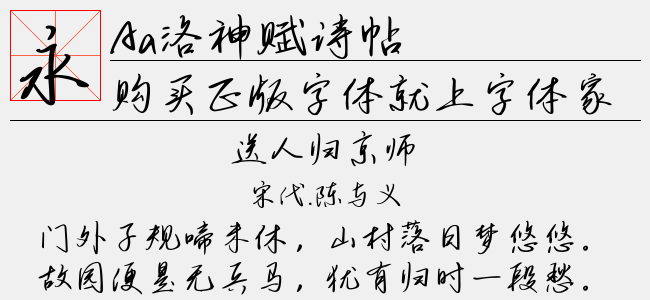 永
Aa洛神赋诗帖
购买正版字体就上字体家
送人归京师
宋代.陈与义
门外子规啼未休，山村落日梦悠悠。
故园便是无兵马，犹有归时一段愁。